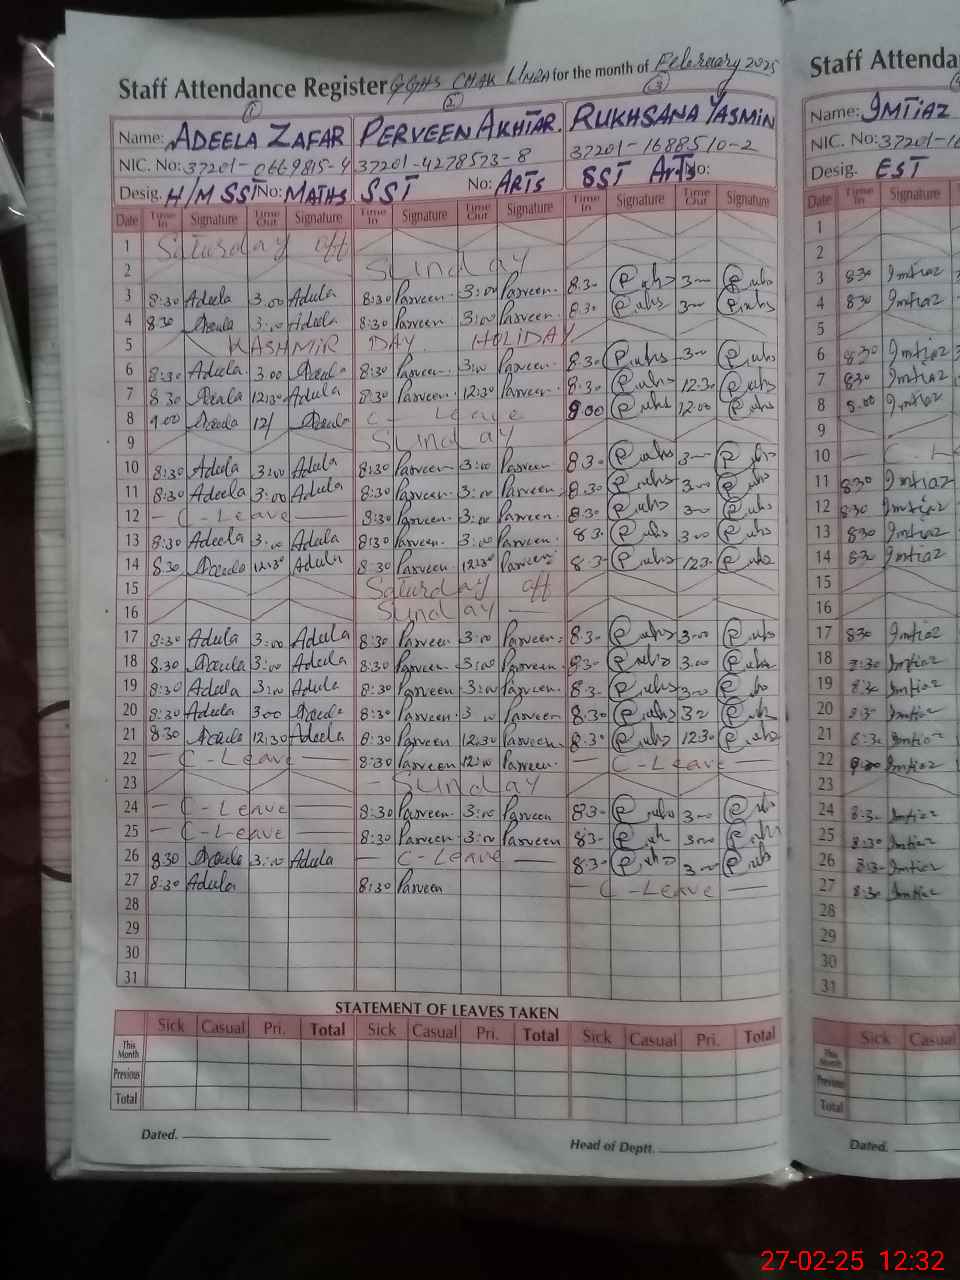 Staff Attendance Register GGHS CHAK UMRA for the month of February 2025
Staff Attenda
① ② ③
Name: ADEELA ZAFAR PERVEEN AKHTAR. RUKHSANA YASMIN Name: IMTIAZ
NIC. No: 37201-0669815-4 37201-4278573-8 37201-1688510-2 NIC. No: 37201-16
Desig. H/M SST No: MATHS SST No: ARTS SST Arts No: Desig. EST
Date Time In Signature Time Out Signature Time In Signature Time Out Signature Time In Signature Time Out Signature Date Time In Signature
1 Saturday off 1
2 Sunday 2
3 8:30 Adeela 3.00 Adeela 8:30 Parveen 3:00 Parveen. 8.30 3-00 3 830 Imtiaz
4 8:30 Adeela 3:00 Adeela 8:30 Parveen 3:00 Parveen. 8.30 3-00 4 830 Imtiaz
5 KASHMIR DAY HOLIDAY 5
6 8:30 Adeela. 3.00 Adeela 8:30 Parveen. 3:00 Parveen. 8.30 3-00 6 8:30 Imtiaz
7 8.30 Adeela 12:30 Adeela 8:30 Parveen. 12:30 Parveen. 8:30 12.30 7 830 Imtiaz
8 9.00 Adeela 12/ Adeela C- Leave 9:00 12:00 8 9.00 Imtiaz
9 Sunday 9
10 8:30 Adeela 3:00 Adeela 8:30 Parveen 3:00 Parveen. 8.30 3-00 10 — C. Le
11 8:30 Adeela 3:00 Adeela 8:30 Parveen. 3:00 Parveen. 8.30 3-00 11 830 Imtiaz
12 — C-Leave — 8:30 Parveen. 3:00 Parveen. 8:30 3-00 12 8:30 Imtiaz
13 8:30 Adeela 3:00 Adeela 8:30 Parveen. 3:00 Parveen. 8.30 3.00 13 830 Imtiaz
14 8.30 Adeela 12:30 Adeela 8:30 Parveen. 12:30 Parveen 8.30 12.30 14 830 Imtiaz
15 Saturday off 15
16 Sunday — 16
17 8:30 Adeela 3:00 Adeela 8:30 Parveen 3:00 Parveen. 8:30 3.00 17 830 Imtiaz
18 8.30 Adeela 3:00 Adeela 8:30 Parveen. 3:00 Parveen. 8:30 3.00 18 8:30 Imtiaz
19 8:30 Adeela 3:00 Adeela 8:30 Parveen 3:00 Parveen. 8.30 3-00 19 8:30 Imtiaz
20 8:30 Adeela 3:00 Adeela 8:30 Parveen. 3:00 Parveen 8.30 3-00 20 8:30 Imtiaz
21 8:30 Adeela 12:30 Adeela 8:30 Parveen 12:30 Parveen. 8:30 12.30 21 8:30 Imtiaz
22 — C-Leave — 8:30 Parveen 12:00 Parveen — C-Leave — 22 9:00 Imtiaz
23 — Sunday 23
24 — C-Leave — 8:30 Parveen. 3:00 Parveen 8.30 3-00 24 8:30 Imtiaz
25 — C-Leave — 8:30 Parveen 3:00 Parveen 8.30 3.00 25 8:30 Imtiaz
26 8:30 Adeela 3:00 Adeela — C-Leave — 8:30 3-00 26 8:30 Imtiaz
27 8:30 Adeela 8:30 Parveen — C-Leave — 27 8:30 Imtiaz
28 28
29 29
30 30
31 31
STATEMENT OF LEAVES TAKEN
Sick Casual Pri. Total Sick Casual Pri. Total Sick Casual Pri. Total Sick Casual
This Month This Month
Previous Previous
Total Total
Dated. Head of Deptt. Dated.
27-02-25 12:32